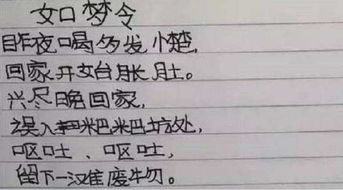 如梦令
昨夜喝多发小楚,
回家开始胀肚。
兴尽晚回家,
误入粑粑坊处,
呕吐、呕吐,
留下一滩废物。